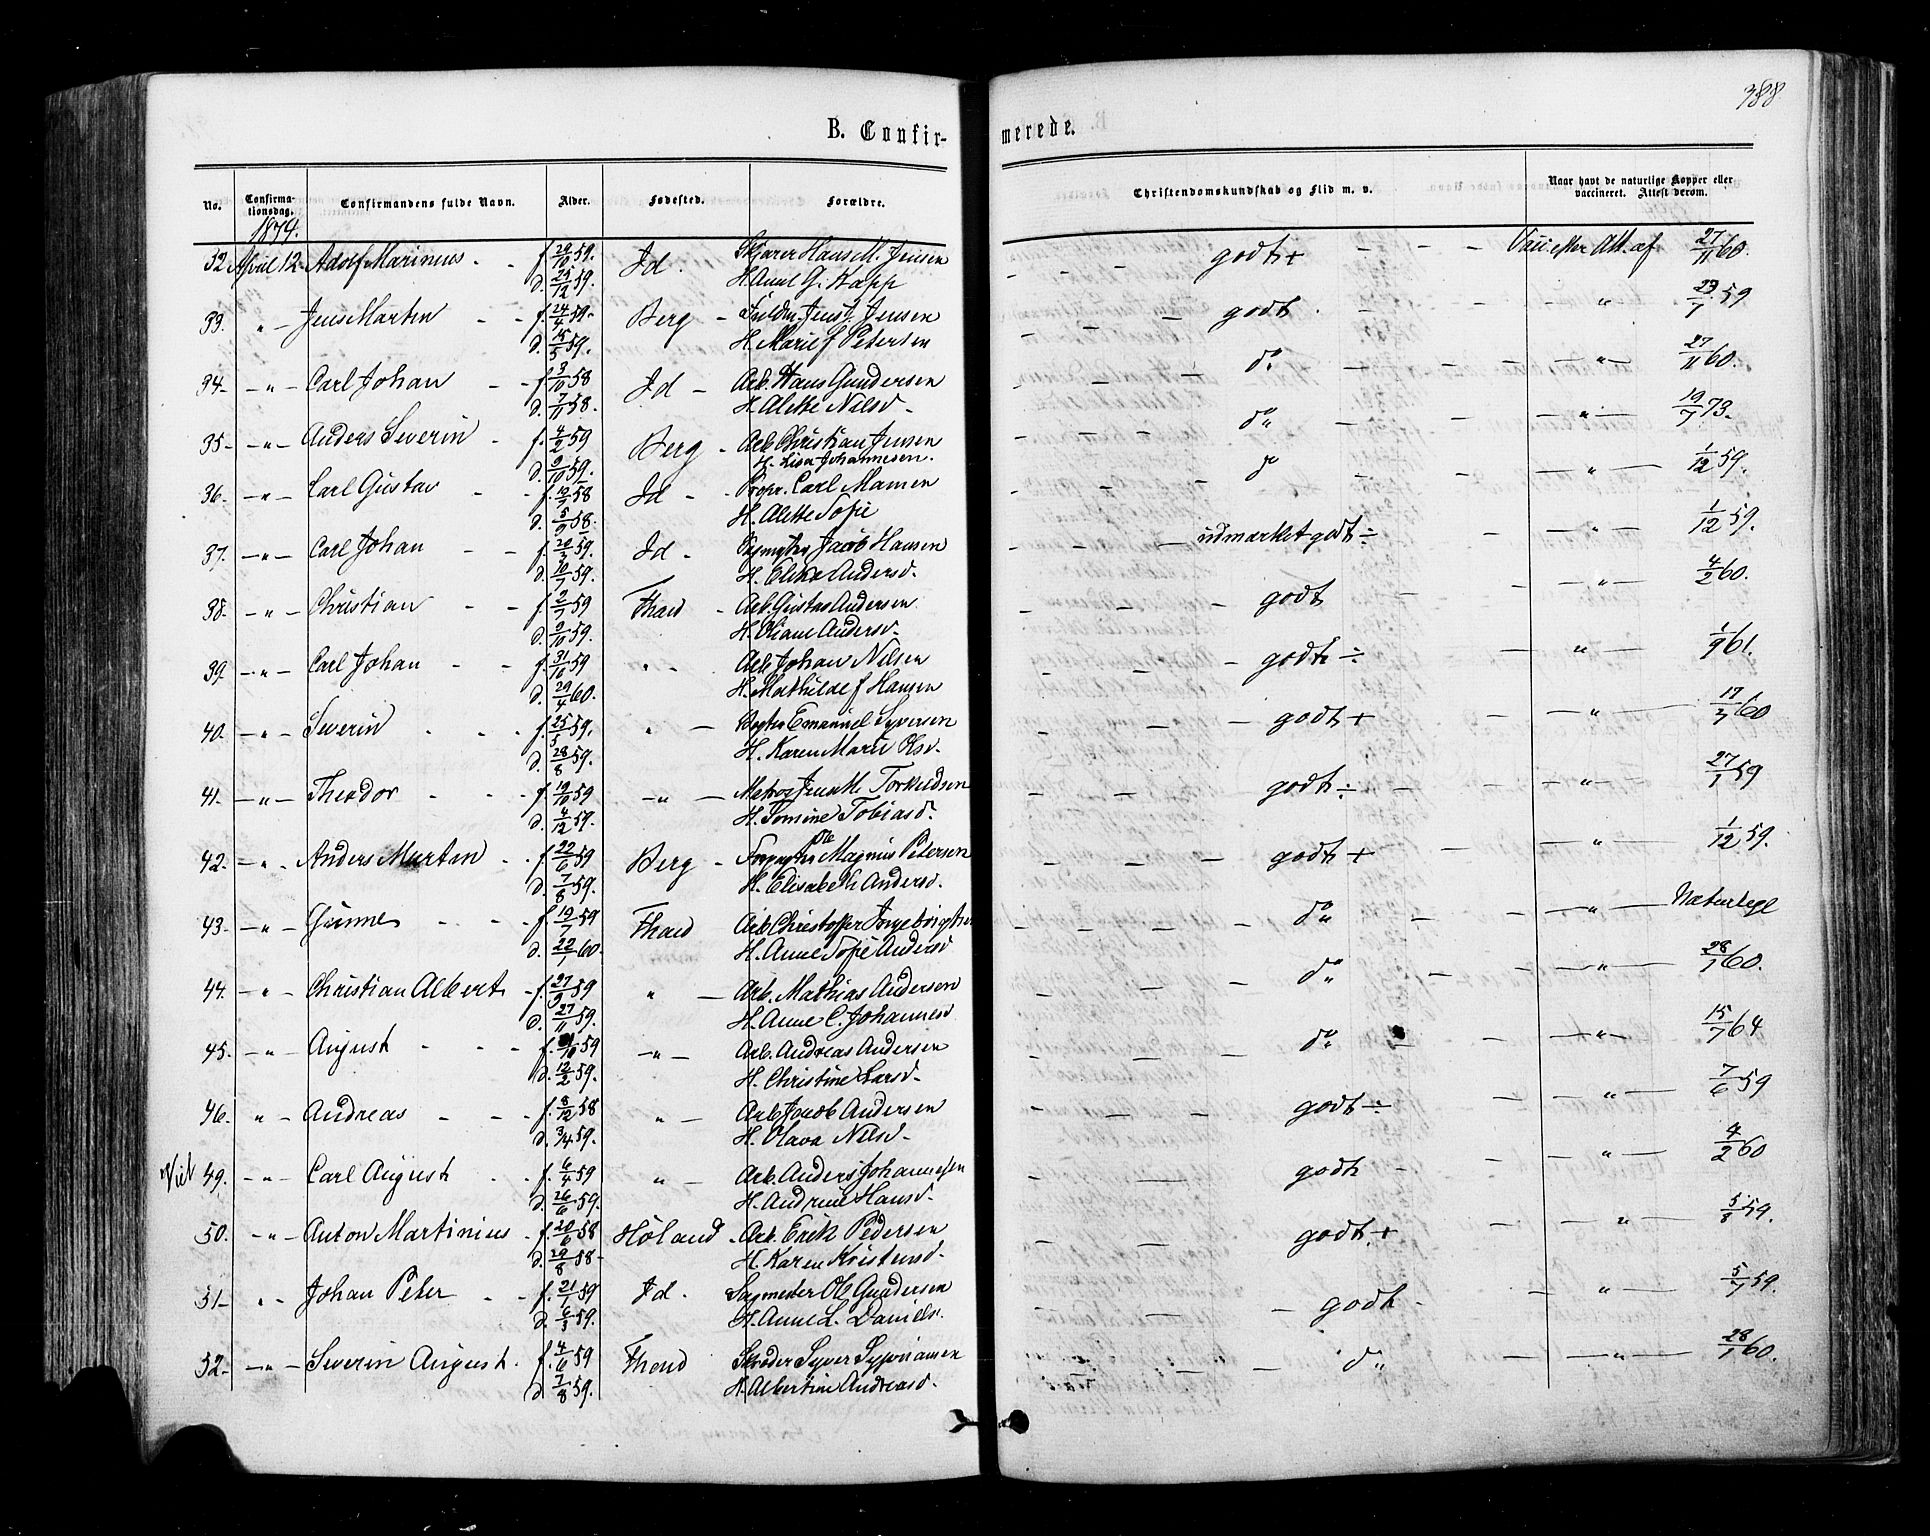 388
B. Confir-
merede.
No.
Confirma-
tionsdag.
Confirmandens fulde Navn.
Alder.
Fødested.
Forældre.
Christendomskundskab og Flid m. v.
Naar havt de naturlige Kopper eller
vaccineret. Attest derom.
1874.
32. April 12 Adolf Marinius - - f. 29/10 59. Id. Hans M. Jensen godt + - - - Att. af 27/11 60.
d. 25/12 59. H. Anne G. Kapp
33. " - Jens Martin - - f. 24/4 59 - Berg - Jens J. Jensen godt - " 29/7 59
d. 15/5 59. H. Marie f Petersen
34 - " - Carl Johan - - f. 3/10 58 Id - Arb. Hans Gundersen do - " - 27/11 60.
d. 7/11 58. H. Alette Nilsd -
35 - " - Anders Severin - f. 4/2 59 Berg - Arb. Christian Jensen do - " - 19/7 73.
d. 9/10 59. H. Lisa Johannesen.
36. - " - Carl Gustav - - f. 12/7 58 Id - Propr. Carl Mamen do - " - 1/12 59.
d. 5/9 58. H. Alette Sofie
37. - " - Carl Johan - - f. 20/3 59. Id - Jacob Hansen - udmærket godt ÷ - " - 1/12 59.
d. 10/7 59. H. Andersd.
38. - " - Christian - - f. 2/7 59 Fhald - Arb. Gustav Andersen - godt - " - 4/2 60.
d. 9/10 59. H. Oliane Andersd.
39. - " - Carl Johan - - f. 31/10 59 " - Arb. Johan Nilsen - godt ÷ - " - 1/9 61.
d. 29/4 60. H. Mathilde f Hansen
40. - " - Severin - - - f. 25/5 59. " - Emanuel Syversen - godt + - " - 17/7 60
d. 28/8 59. H. Karen Marie Olsd.
41. - " - Theodor - - - f. 19/10 59 - " - Matros Jens M. Torkildsen godt ÷ - " - 27/1 59
d. 4/12 59. H. Tomine Tobiasd.
42. - " - Anders Martin - - f. 22/6 59 Berg - Ole Magnus Petersen godt + - " - 1/12 59.
d. 7/8 59. H. Elisabeth Andersd.
43. - " - Gunne - - - f. 19/7 59 Fhald Arb. Christoffer do - " - Naturlige
d. 22/1 60. H. Anne Sofie Andersd
44. - " - Christian Albert - f. 27/9 59 " - Arb. Mathias Andersen do - " - 28/1 60.
d. 27/11 59. H. Anne C. Johannesd
45. - " - August - - - f. /10 59 - " - Arb. Andreas Andersen do - " - 15/7 64
d. 12/2 59. H. Christine Larsd.
46. " - Andreas - - - f. 8/12 58 " - Arb. Jacob Andersen godt ÷ - " - 7/6 59
d. 3/4 59. H. Olava Nilsd.
49. - " - Carl August - - f. 6/4 59 " - Arb. Anders Johannesen godt - " - 4/2 60
d. 26/6 59. H. Andrine Hansd.
50. - " - Anton Martinius - f. 20/6 58 Høland - Arb. Erik Pedersen godt + - " - 5/8 59.
d. 29/8 58 - H. Karen Kristensd.
51 - " - Johan Peter - - f. 21/1 59 Id. Sagmester Ole Gundersen - godt - " - 5/7 59.
d. 6/3 59. H. Anne L. Danielsd.
52. - " - Severin August. f. 4/6 59 Fhald Skræder Syver Sypriansen - do - " - 28/1 60.
d. 7/8 59. H. Albertine Andreasd.